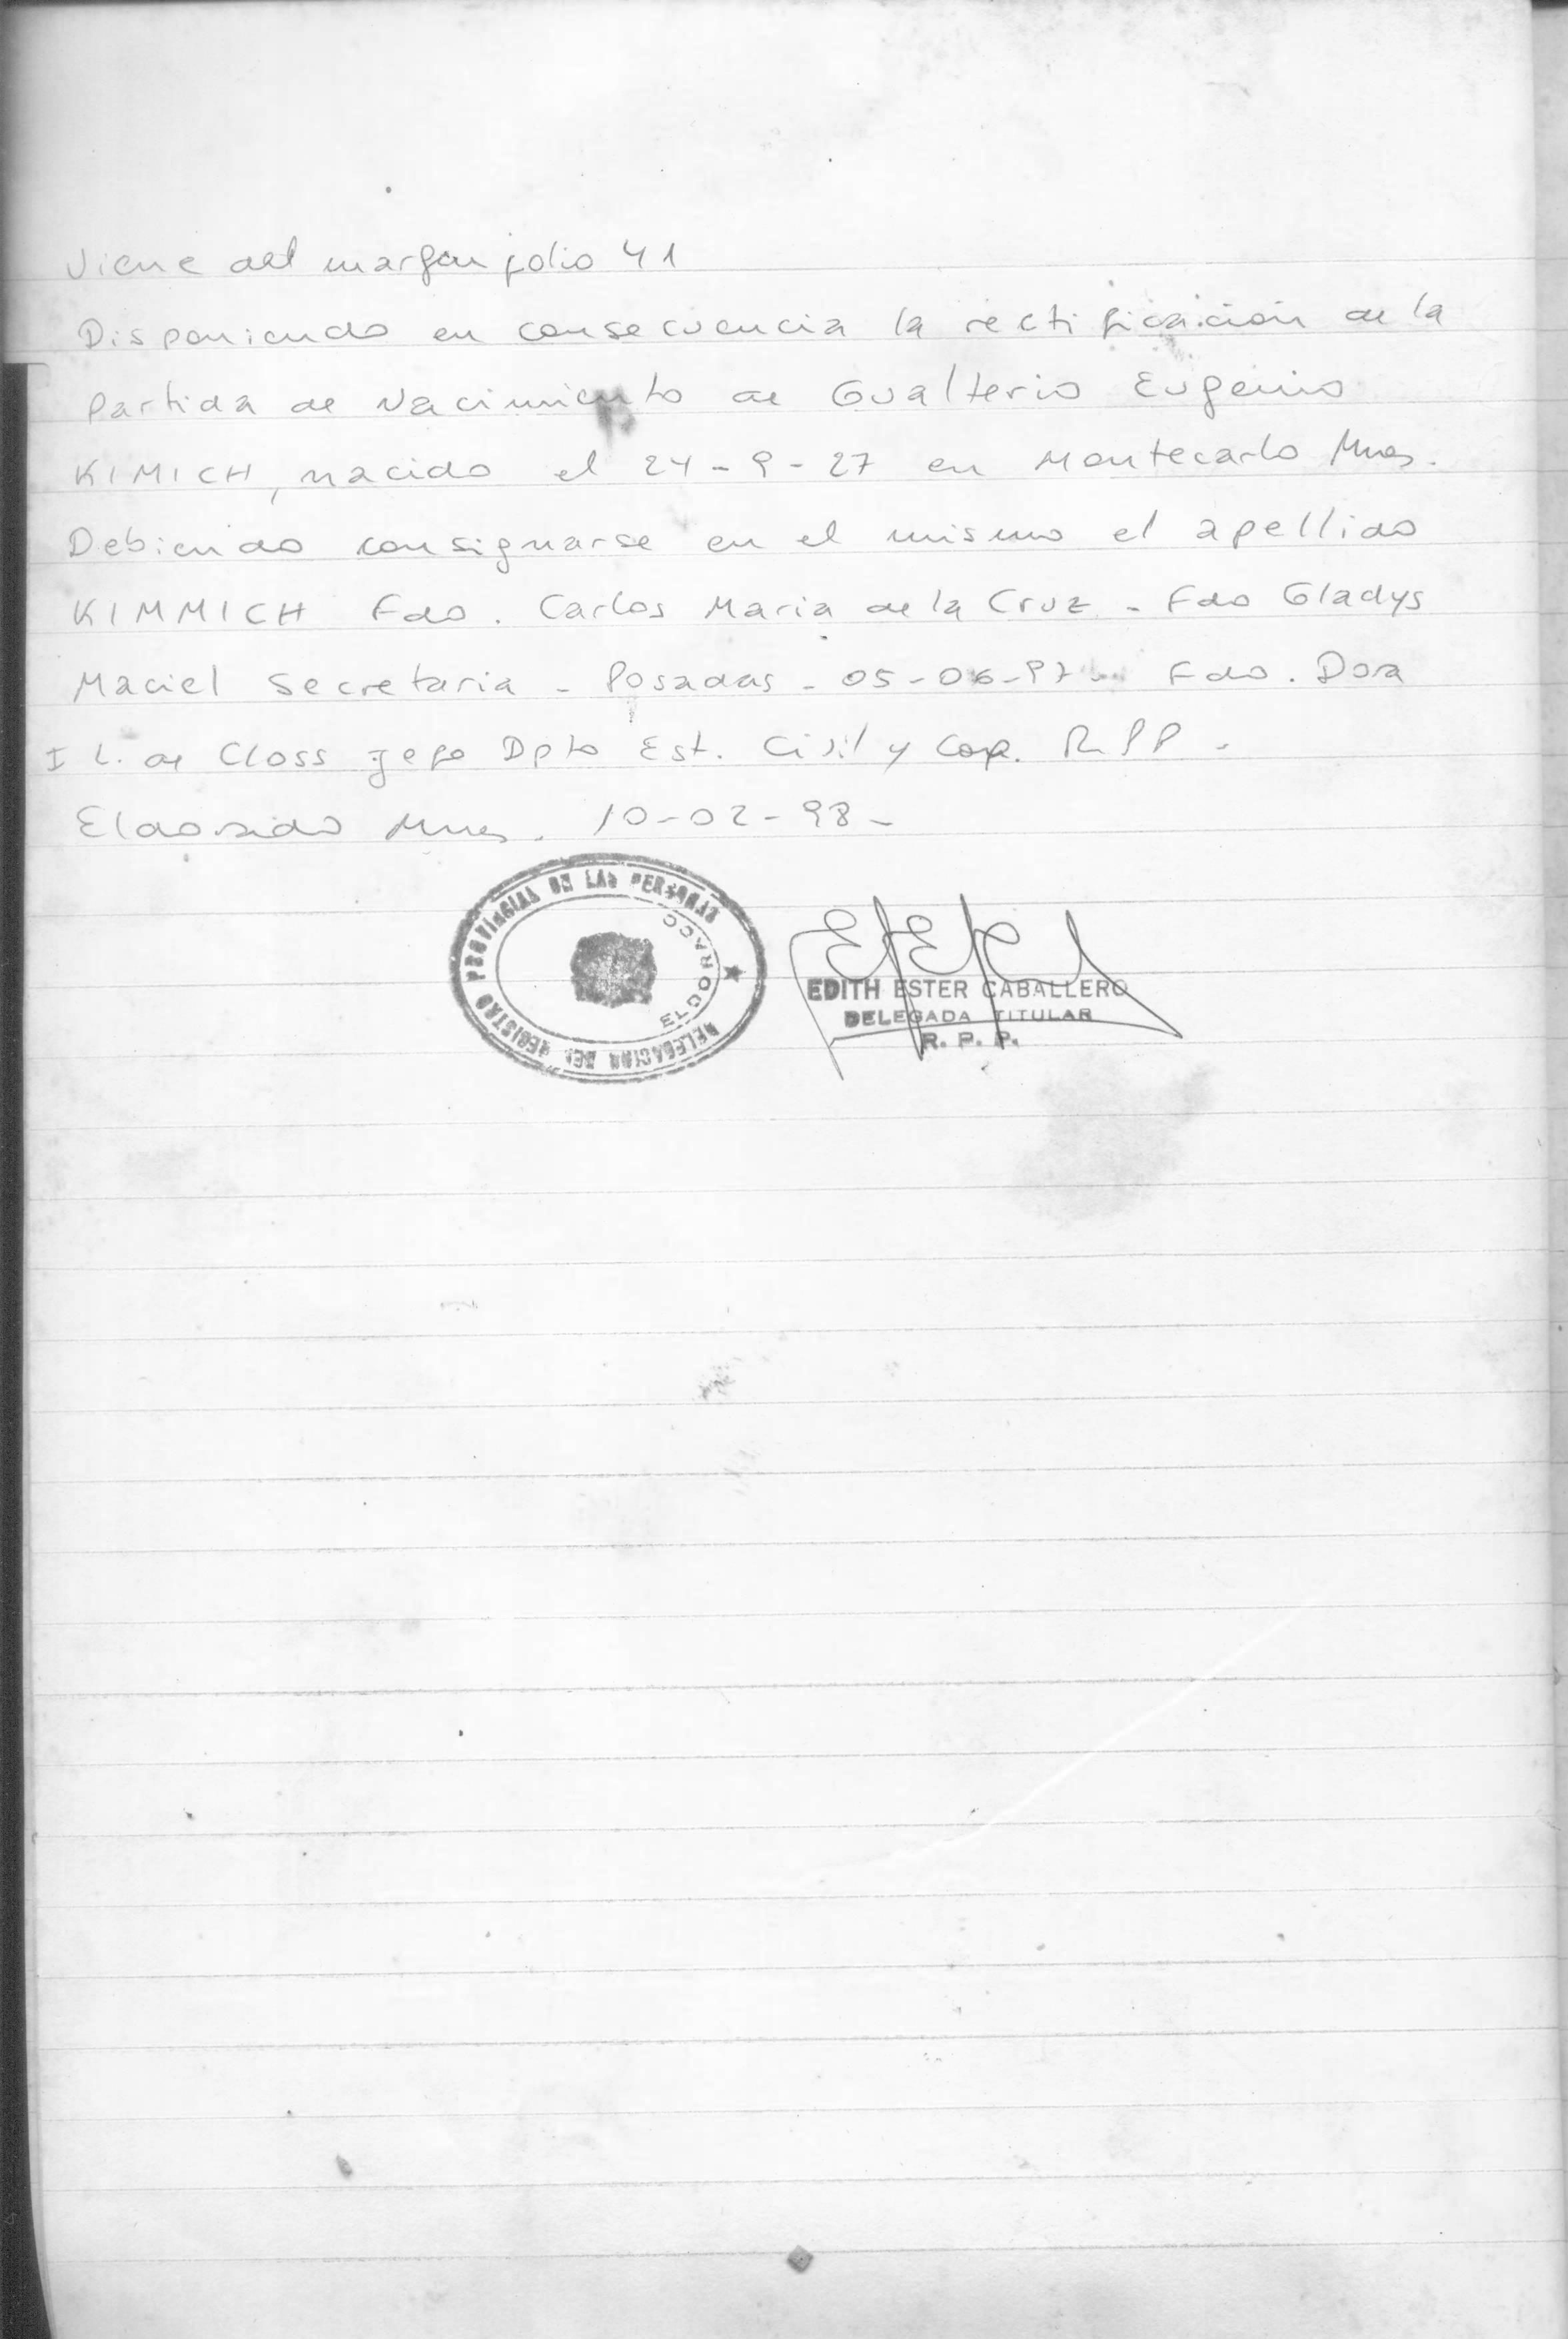 Viene del margen folio 41
Disponiendo en consecuencia la rectificación de la
Partida de Nacimiento de Gualterio Eugenio
KIMICH, nacido el 24-9-27 en Montecarlo Mnes.
Debiendo consignarse en el mismo el apellido
KIMMICH Fdo. Carlos Maria de la Cruz - Fdo Gladys
Maciel Secretaria - Posadas - 05-06-97 - Fdo. Dora
I L. de Closs Jefe Dpto Est. Civil y Cap. R.P.P -
Eldorado Mnes. 10-02-98-
DELEGACION DEL REGISTRO PROVINCIAL DE LAS PERSONAS
ELDORADO
EDITH ESTER CABALLERO
DELEGADA TITULAR
R. P. P.